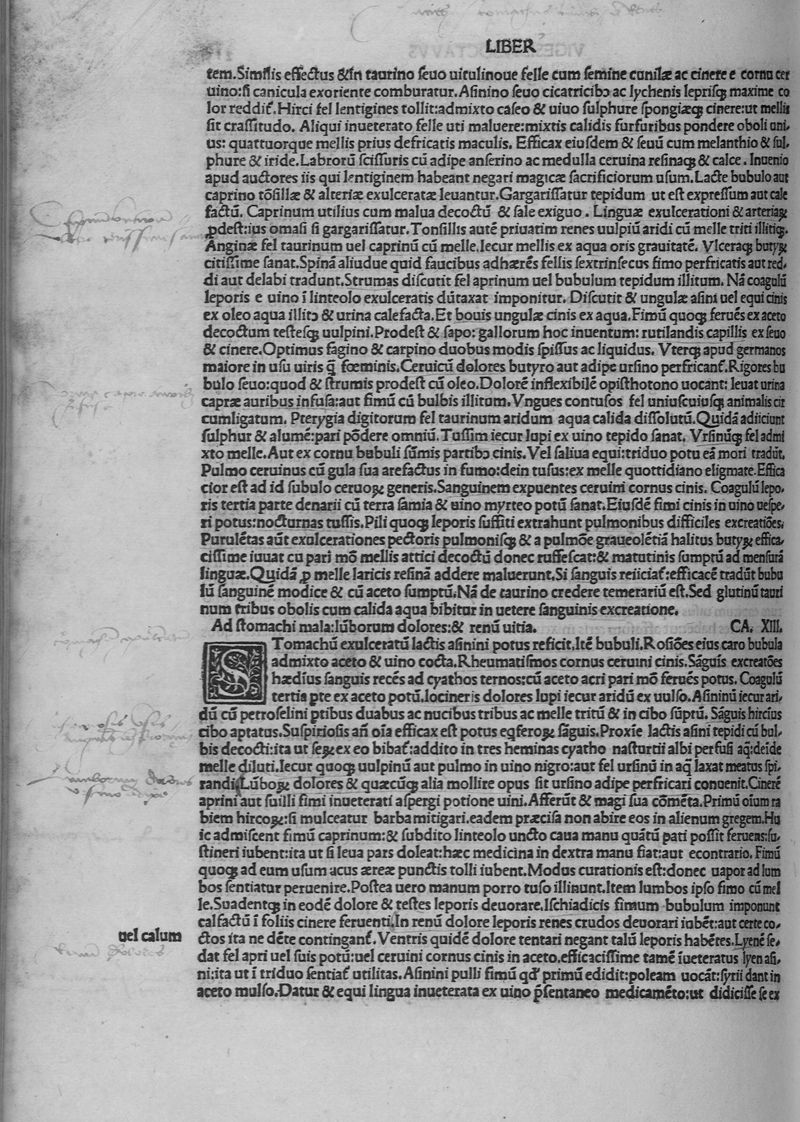 LIBER
tem. Similis effectus & in taurino seuo uitulinoue felle cum semine cunilæ ac cinere e cornu cer
uino: si canicula exoriente comburatur. Asinino seuo cicatricibꝰ ac lychenis leprisq; maxime co
lor reddit̃. Hirci fel lentigines tollit: admixto caseo & uiuo sulphure spongiæq; cinere: ut mellis
sit crassitudo. Aliqui inueterato felle uti maluere: mixtis calidis furfuribus pondere oboli uni,
us: quattuorque mellis prius defricatis maculis. Efficax eiusdem & seuū cum melanthio & sul,
phure & iride. Labrorū scissuris cū adipe anserino ac medulla ceruina resinaq; & calce. Inuenio
apud auctores iis qui lentiginem habeant negari magicæ sacrificiorum usum. Lacte bubulo aut
caprino tōsillæ & alteriæ exulceratæ leuantur. Gargarissatur tepidum ut est expressum aut cale
factū. Caprinum utilius cum malua decoctū & sale exiguo. Linguæ exulcerationi & arteriaꝝ
ꝓdest: ius omasi si gargarissatur. Tonsillis autē priuatim renes uulpiū aridi cū melle triti illitiq;.
Anginæ fel taurinum uel caprinū cū melle. Iecur mellis ex aqua oris grauitatē. Vlceraq; butyꝝ
citissime sanat. Spinā aliudue quid faucibus adhærēs fellis sextrinsecus fimo perfricatis aut red,
di aut delabi tradunt. Strumas discutit fel aprinum uel bubulum tepidum illitum. Nā coagulū
leporis e uino ī linteolo exulceratis dūtaxat imponitur. Discutit & ungulæ asini uel equi cinis
ex oleo aqua illitꝰ & urina calefacta. Et bouis ungulæ cinis ex aqua. Fimū quoq; feruēs ex aceto
decoctum testesq; uulpini. Prodest & sapo: gallorum hoc inuentum: rutilandis capillis ex seuo
& cinere. Optimus fagino & carpino duobus modis spissus ac liquidus. Vterq; apud germanos
maiore in usu uiris q̄ fœminis. Ceruicū dolores butyro aut adipe ursino perfricant̃. Rigores bu
bulo seuo: quod & strumis prodest cū oleo. Dolorē inflexibilē opisthotono uocant: leuat urina
capræ auribus infusa: aut fimū cū bulbis illitum. Vngues contusos fel uniuscuiusq; animalis cir
cumligatum. Pterygia digitorum fel taurinum aridum aqua calida dissolutū. Quidā adiiciunt
sulphur & alumē: pari pōdere omniū. Tussim iecur lupi ex uino tepido sanat. Vrsinūq; fel admi
xto melle. Aut ex cornu bubuli sūmis partibꝰ cinis. Vel saliua equi: triduo potu eā mori tradūt.
Pulmo ceruinus cū gula sua arefactus in fumo: dein tusus: ex melle quottidiano eligmate. Effica
cior est ad id subulo ceruoꝝ generis. Sanguinem expuentes ceruini cornus cinis. Coagulū lepo,
ris tertia parte denarii cū terra samia & uino myrteo potū sanat. Eiusdē fimi cinis in uino uespe,
ri potus: nocturnas tussis. Pili quoq; leporis suffiti extrahunt pulmonibus difficiles excreatiōes.
Purulētas aūt exulcerationes pectoris pulmonisq; & a pulmōe graueolētiā halitus butyꝝ effica,
cissime iuuat cu pari mō mellis attici decoctū donec ruffescat: & matutinis sumptū ad mensurā
linguæ. Quidā ꝓ melle laricis resinā addere maluerunt. Si sanguis reiiciat̃: efficacē tradūt bubu
lū sanguinē modice & cū aceto sumptū. Nā de taurino credere temerariū est. Sed glutinū tauri
num tribus obolis cum calida aqua bibitur in uetere sanguinis excreatione.
Ad stomachi mala: lūborum dolores: & renū uitia. CA. XIII.
STomachū exulceratū lactis asinini potus reficit. Itē bubuli. Rosiōes eius caro bubula
admixto aceto & uino cocta. Rheumatismos cornus ceruini cinis. Sāguis excreatōes
hædius sanguis recēs ad cyathos ternos: cū aceto acri pari mō feruēs potus. Coagulū
tertia pte ex aceto potū. Iocineris dolores lupi iecur aridū ex uulso. Asininū iecur ari,
dū cū petroselini ptibus duabus ac nucibus tribus ac melle tritū & in cibo sūptū. Sāguis hircius
cibo aptatus. Suspiriosis añ oīa efficax est potus eqferoꝝ sāguis. Proxīe lactis asini tepidi cū bul,
bis decocti: ita ut seꝝ ex eo bibat̃: addito in tres heminas cyatho nasturtii albi perfusi aq̄: deīde
melle diluti. Iecur quoq; uulpinū aut pulmo in uino nigro: aut fel ursinū in aq̄ laxat meatus spi,
randi. Lūboꝝ dolores & quæcūq; alia mollire opus sit ursino adipe perfricari conuenit. Cinerē
aprini aut suilli fimi inueterati aspergi potione uini. Afferūt & magi sua cōmēta. Primū oīum ra
biem hircoꝝ: si mulceatur barba mitigari. eadem præcisa non abire eos in alienum gregem. Hu
ic admiscent fimū caprinum: & subdito linteolo uncto caua manu quātū pati possit feruens: su,
stineri iubent: ita ut si leua pars doleat: hæc medicina in dextra manu fiat: aut econtrario. Fimū
quoq; ad eum usum acus æreæ punctis tolli iubent. Modus curationis est: donec uapor ad lum
bos sentiatur peruenire. Postea uero manum porro tuso illinunt. Item lumbos ipso fimo cū mel
le. Suadentq; in eodē dolore & testes leporis deuorare. Ischiadicis fimum bubulum imponunt
calfactū ī foliis cinere feruenti. In renū dolore leporis renes crudos deuorari iubēt: aut certe co,
uel calum
ctos ita ne dēte contingant̃. Ventris quidē dolore tentari negant talū leporis habētes. Lyenē se,
dat fel apri uel suis potū: uel ceruini cornus cinis in aceto. efficacissime tamē īueteratus lyen asi,
ni: ita ut ī triduo sentiat̃ utilitas. Asinini pulli fimū qđ primū edidit: poleam uocāt: syrii dant in
aceto mulso. Datur & equi lingua inueterata ex uino p̄sentaneo medicamēto: ut didicisse se ex